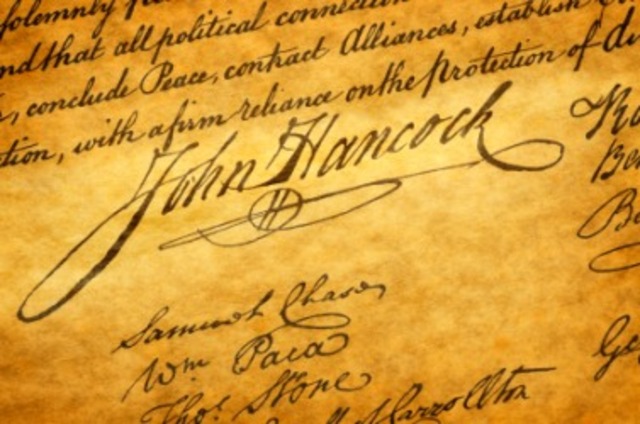 solemnly
nd that all political connection
, conclude Peace, contract Alliances, establish
tion, with a firm reliance on the protection of di
John Hancock
H
Samuel Chase
Wm Paca
Thos. Stone
Carrollton
Ro
Be
B
Ge